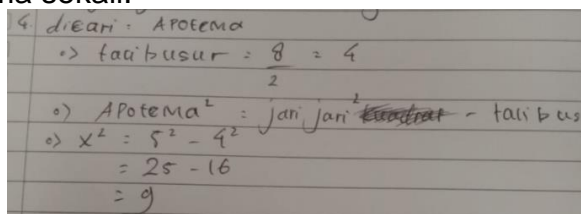 na sekali.
4. dicari : Apotema
•> talibusur : 8/2 = 4
•) APoteMa² : jari jari² - talibus
•> x² = 5² - 4²
= 25 - 16
= 9